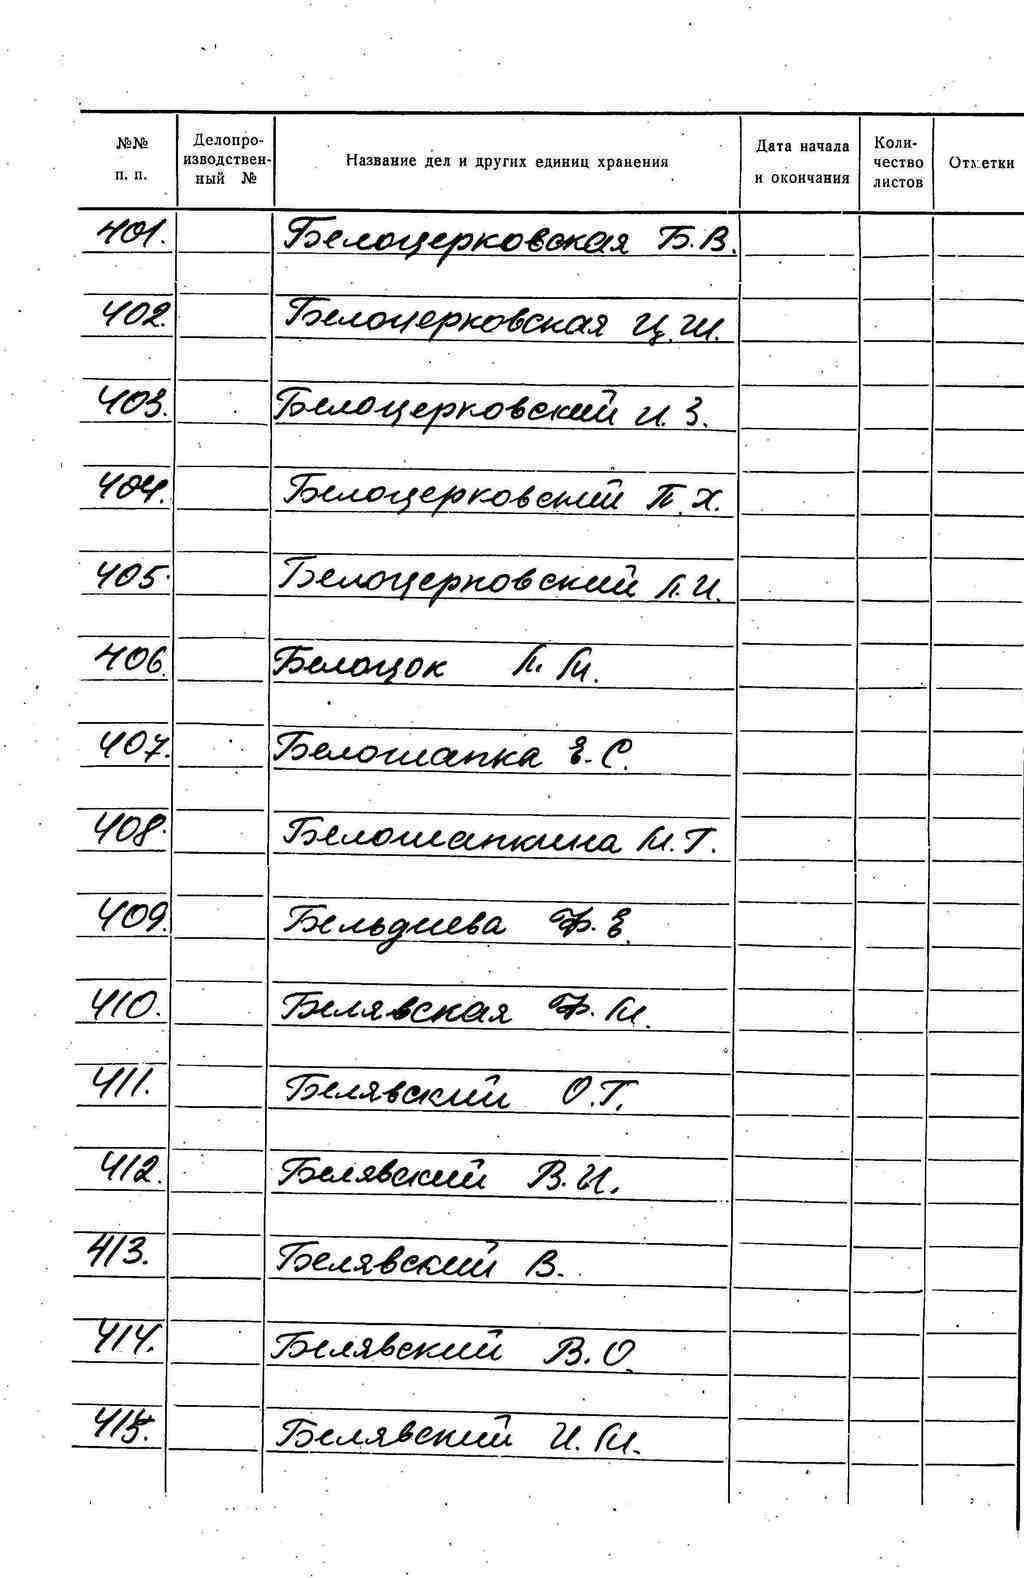 №№ п. п. Делопроизводственный № Название дел и других единиц хранения Дата начала и окончания Количество листов Отметки
401. Белоцерковская Б.В.
402. Белоцерковская Ц.Ш.
403. Белоцерковский И.З.
404. Белоцерковский П.Х.
405. Белоцерковский Л.И.
406. Белоцок Л.М.
407. Белошапка Е.С.
408. Белошапкина М.Г.
409. Бельдиева Ф.Е.
410. Белявская Ф.М.
411. Белявский О.Г.
412. Белявский В.И.
413. Белявский В.
414. Белявский В.О.
415. Белявский И.М.